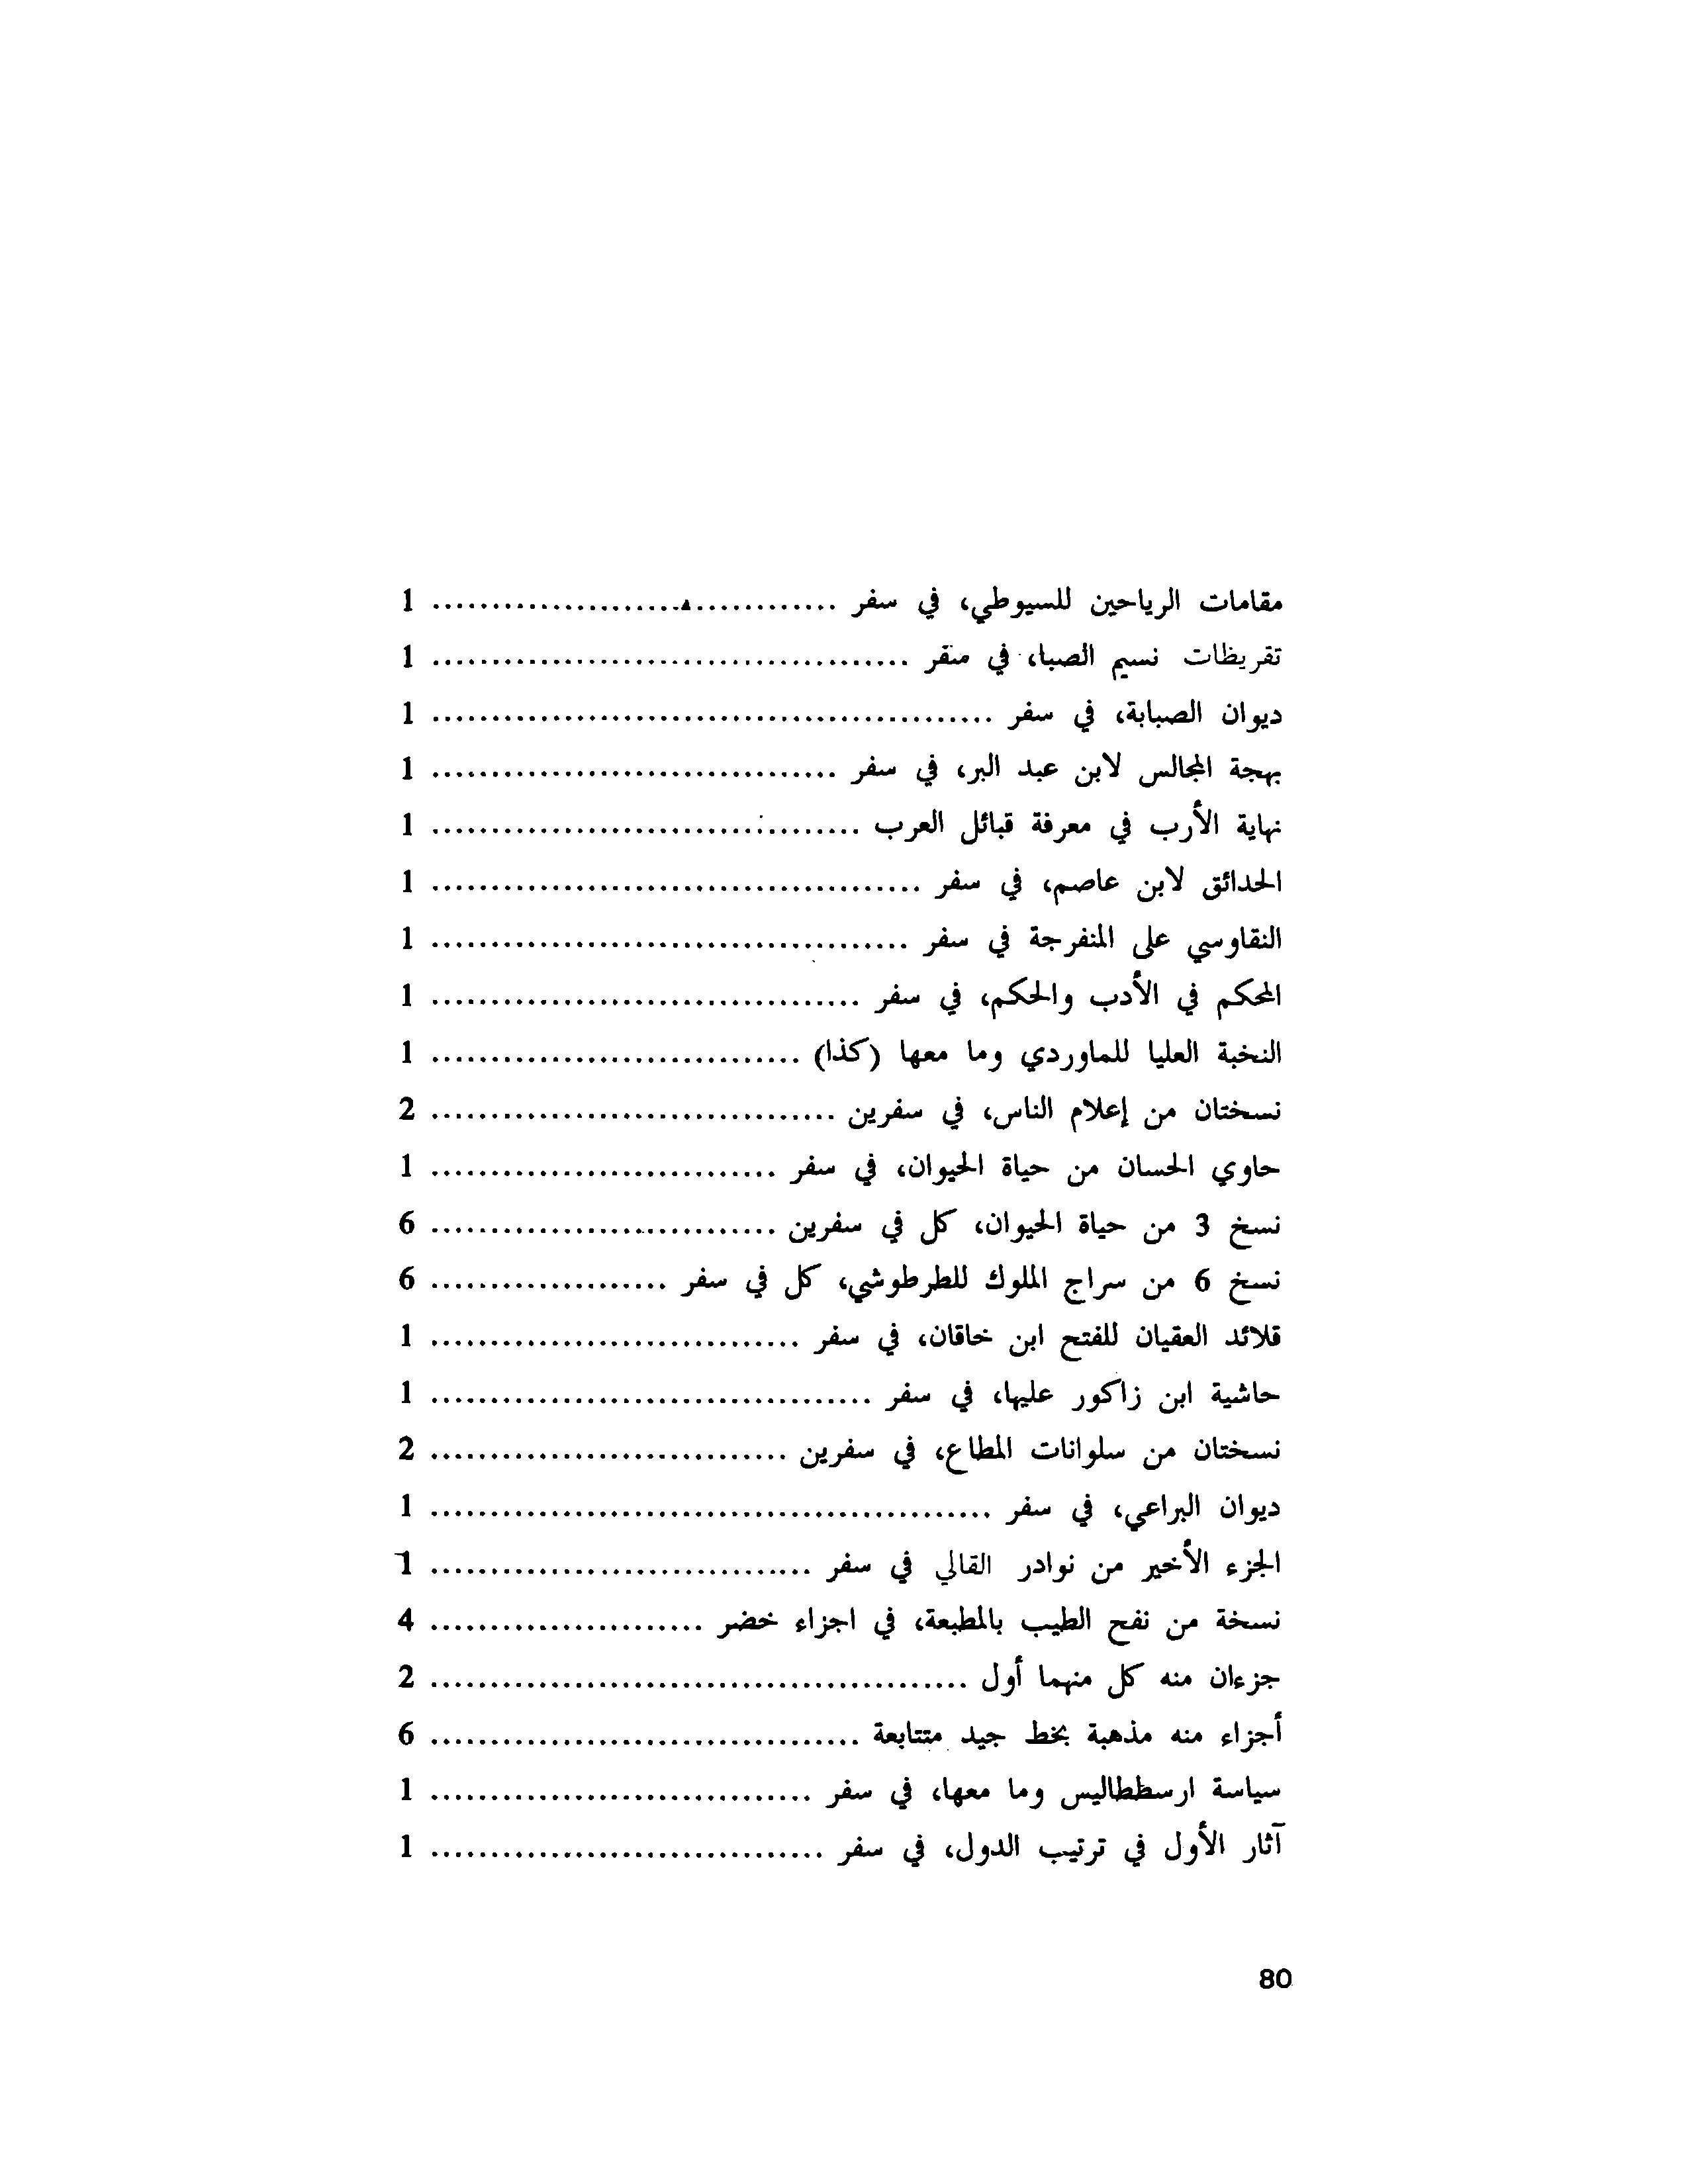 مقامات الرياحين للسيوطي، في سفر .................................. 1
تقريظات نسيم الصبا، في منقر ........................................ 1
ديوان الصبابة، في سفر ............................................... 1
بهجة المجالس لابن عبد البر، في سفر .................................. 1
نهاية الأرب في معرفة قبائل العرب .................................... 1
الحدائق لابن عاصم، في سفر ......................................... 1
النقاوسي على المنفرجة في سفر ........................................ 1
المحكم في الأدب والحكم، في سفر .................................... 1
النخبة العليا للماوردي وما معها (كذا) ............................... 1
نسختان من إعلام الناس، في سفرين .................................. 2
حاوي الحسان من حياة الحيوان، في سفر ............................. 1
نسخ 3 من حياة الحيوان، كل في سفرين ............................. 6
نسخ 6 من سراج الملوك للطرطوشي، كل في سفر .................... 6
قلائد العقيان للفتح ابن خاقان، في سفر ............................... 1
حاشية ابن زاكور عليها، في سفر ..................................... 1
نسختان من سلوانات المطاع، في سفرين .............................. 2
ديوان البراعي، في سفر ............................................... 1
الجزء الأخير من نوادر القالي في سفر ................................ 1
نسخة من نفح الطيب بالمطبعة، في اجزاء خضر ....................... 4
جزءان منه كل منهما أول ............................................. 2
أجزاء منه مذهبة بخط جيد متتابعة .................................... 6
سياسة ارسططاليس وما معها، في سفر ................................ 1
آثار الأول في ترتيب الدول، في سفر ................................. 1
80